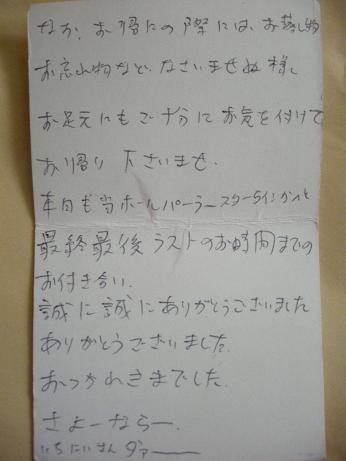 なお、お帰りの際には、お落し物
お忘れ物など、なさいませぬ様、
お足元にもご十分にお気を付けて
お帰り下さいませ。
本日も当ホールパーラースター5インかべと
最終最後ラストのお時間までの
お付き合い、
誠に誠にありがとうございました
ありがとうございました。
おつかれさまでした。
さよーならー。
いちにいさんダァーーー